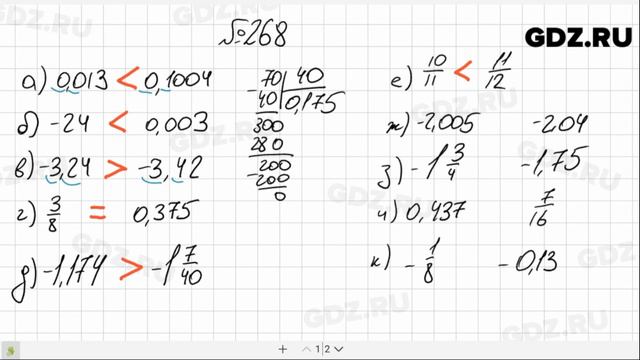 №268
GDZ.RU
а) 0,013 < 0,1004
б) -24 < 0,003
в) -3,24 > -3,42
г) 3/8 = 0,375
д) -1,174 > -1 7/40
70 | 40
- 40 | 0,175
300
280
200
- 200
0
е) 10/11 < 11/12
ж) -2,005 -2,04
з) -1 3/4 -1,75
и) 0,437 7/16
к) -1/8 -0,13
+ 1|2